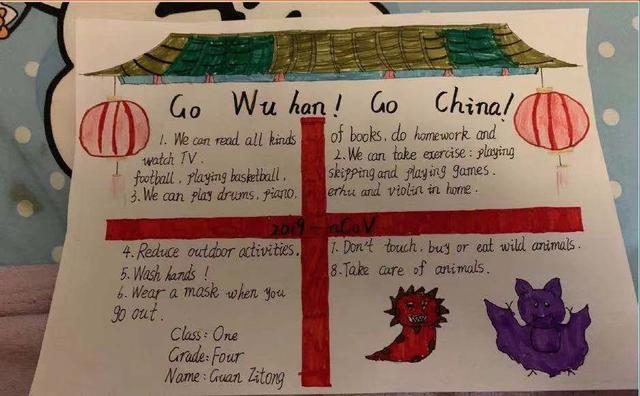 Go Wuhan! Go China!
1. We can read all kinds of books, do homework and
watch TV.
2. We can take exercise: playing
football, playing basketball, skipping and playing games.
3. We can play drums, piano, erhu and violin in home.
2019-nCoV
4. Reduce outdoor activities.
5. Wash hands!
6. Wear a mask when you
go out.
7. Don't touch, buy or eat wild animals.
8. Take care of animals.
Class: One
Grade: Four
Name: Guan Zitong